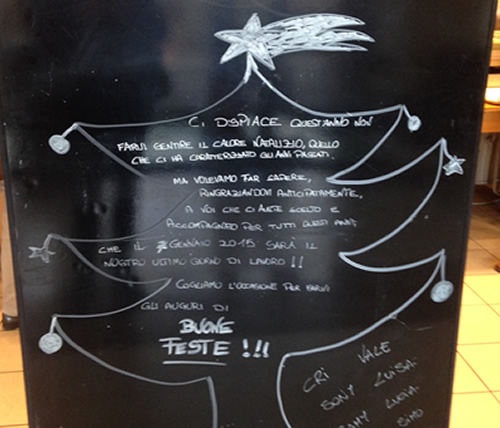 CI DISPIACE QUEST'ANNO NON
FARVI SENTIRE IL CALORE NATALIZIO, QUELLO
CHE CI HA CARATTERIZZATO GLI ANNI PASSATI.
MA VOLEVAMO FAR SAPERE,
RINGRAZIANDOVI ANTICIPATAMENTE,
A VOI CHE CI AVETE SCELTO E
ACCOMPAGNATO PER TUTTI QUESTI ANNI,
CHE IL GENNAIO 2015 SARÀ IL
NOSTRO ULTIMO GIORNO DI LAVORO!!
COGLIAMO L'OCCASIONE PER FARVI
GLI AUGURI DI
BUONE
FESTE!!!
CRI VALE
SONY LUISA.
LUCIA.
SIMO